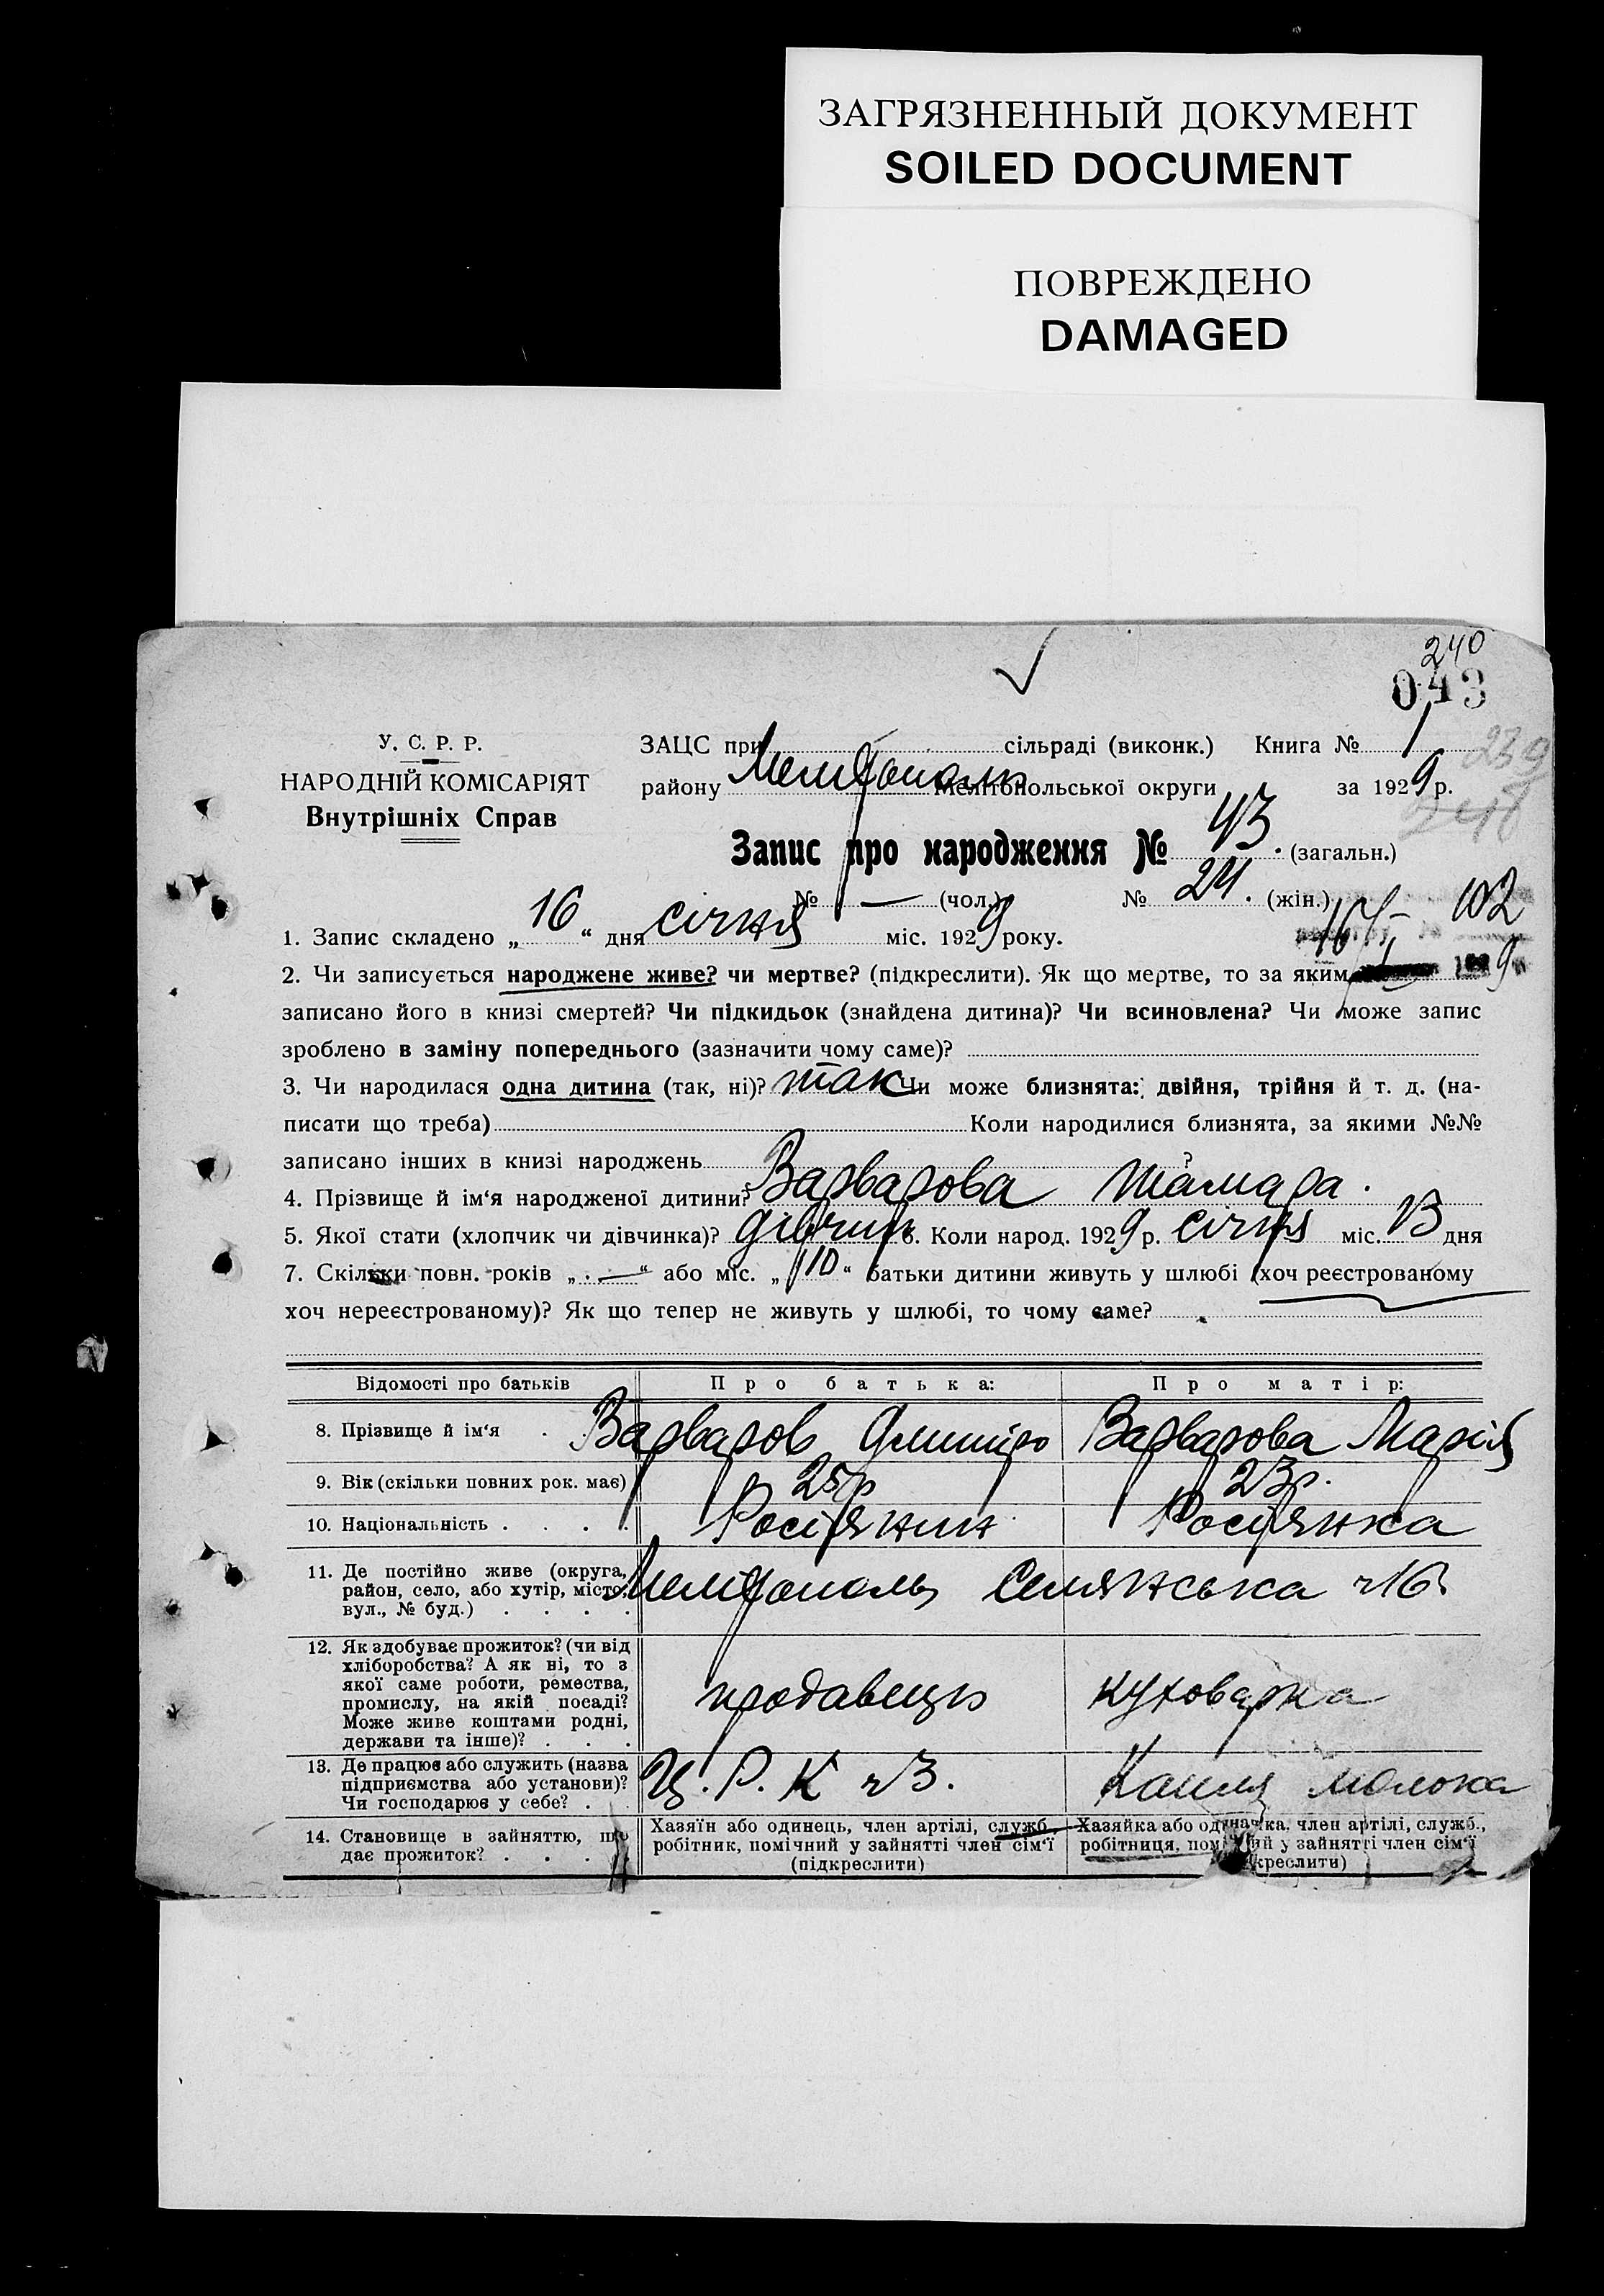 ЗАГРЯЗНЕННЫЙ ДОКУМЕНТ
SOILED DOCUMENT
ПОВРЕЖДЕНО
DAMAGED
240
043
У. С. Р. Р.
НАРОДНІЙ КОМІСАРІЯТ
Внутрішніх Справ
ЗАЦС при сільраді (виконк.) Книга № 1
239
району Мелітополь Мелітопольської округи за 1929 р.
Запис про народження № 43. (загальн.)
№ — (чол.) № 24. (жін.)
102
1. Запис складено „16“ дня січня міс. 1929 року.
2. Чи записується народжене живе? чи мертве? (підкреслити). Як що мертве, то за яким
записано його в книзі смертей? Чи підкидьок (знайдена дитина)? Чи всиновлена? Чи може запис
зроблено в заміну попереднього (зазначити чому саме)?
3. Чи народилася одна дитина (так, ні)? так Чи може близнята: двійня, трійня й т. д. (на-
писати що треба) Коли народилися близнята, за якими №№
записано інших в книзі народжень ?
4. Прізвище й ім‘я народженої дитини? Варварова Тамара.
5. Якої стати (хлопчик чи дівчинка)? дівчин 6. Коли народ. 1929 р. січня міс. 13 дня
7. Скільки повн. років „—“ або міс. „10“ батьки дитини живуть у шлюбі (хоч реєстрованому
хоч нереєстрованому)? Як що тепер не живуть у шлюбі, то чому саме?
Відомості про батьків Про батька: Про матір:
8. Прізвище й ім‘я . . Варваров Дмитро Варварова Марія
9. Вік (скільки повних рок. має) 25р 23р.
10. Національність . . . . Росіянин Росіянка
11. Де постійно живе (округа,
район, село, або хутір, місто,
вул., № буд.) . . . . Мелітополь Селянська ч16
12. Як здобуває прожиток? (чи від
хліборобства? А як ні, то з
якої саме роботи, ремества,
промислу, на якій посаді?
Може живе коштами родні,
держави та інше)? . . .
продавець куховарка
13. Де працює або служить (назва
підприємства або установи)?
Чи господарює у себе? .
Ц. Р. К ч3. Капля молока
14. Становище в зайняттю, що
дає прожиток? . . . .
Хазяїн або одинець, член артілі, служб.,
робітник, помічний у зайнятті член сім‘ї
(підкреслити)
Хазяйка або одиначка, член артілі, служб.,
робітниця, помічний у зайнятті член сім‘ї